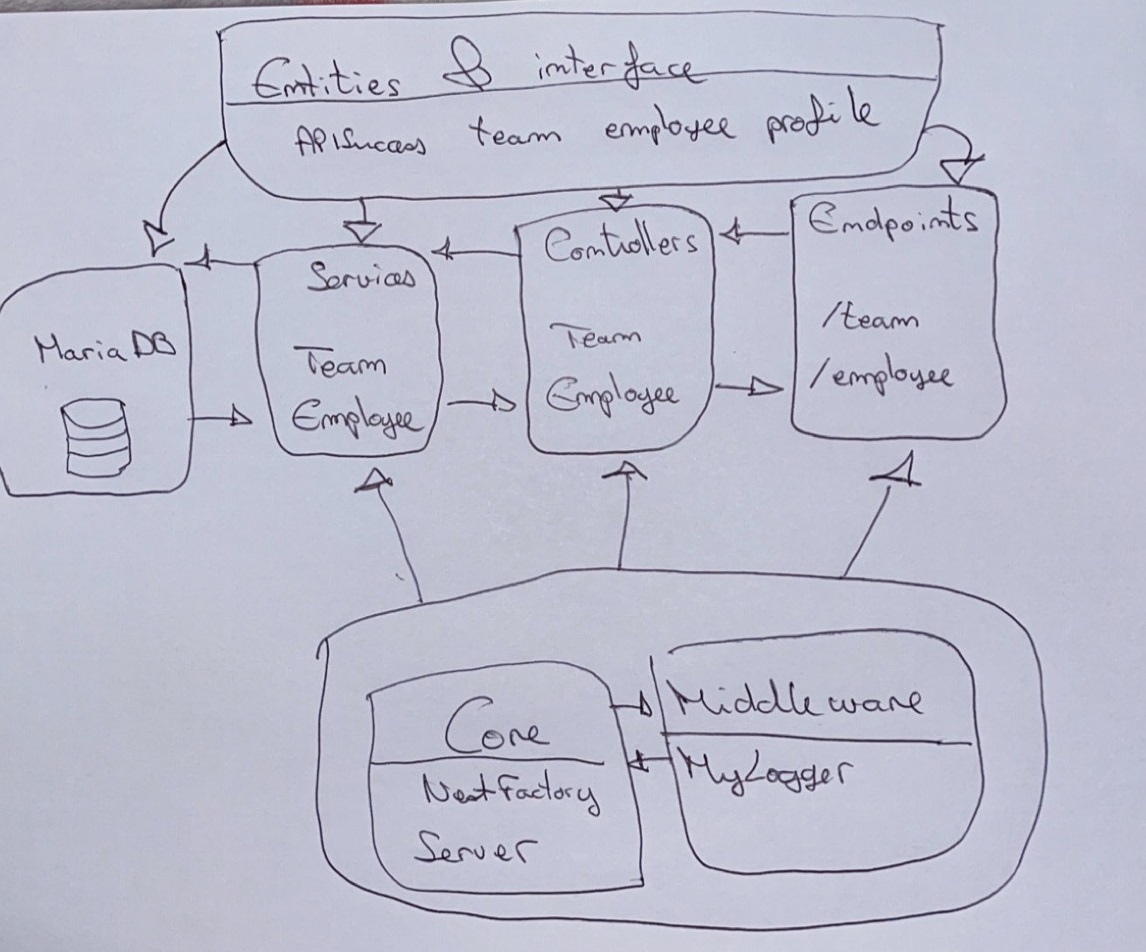 Entities & interface
APISuccess team employee profile
MariaDB
Services
Team
Employee
Controllers
Team
Employee
Endpoints
/team
/employee
Core
NestFactory
Server
Middleware
MyLogger